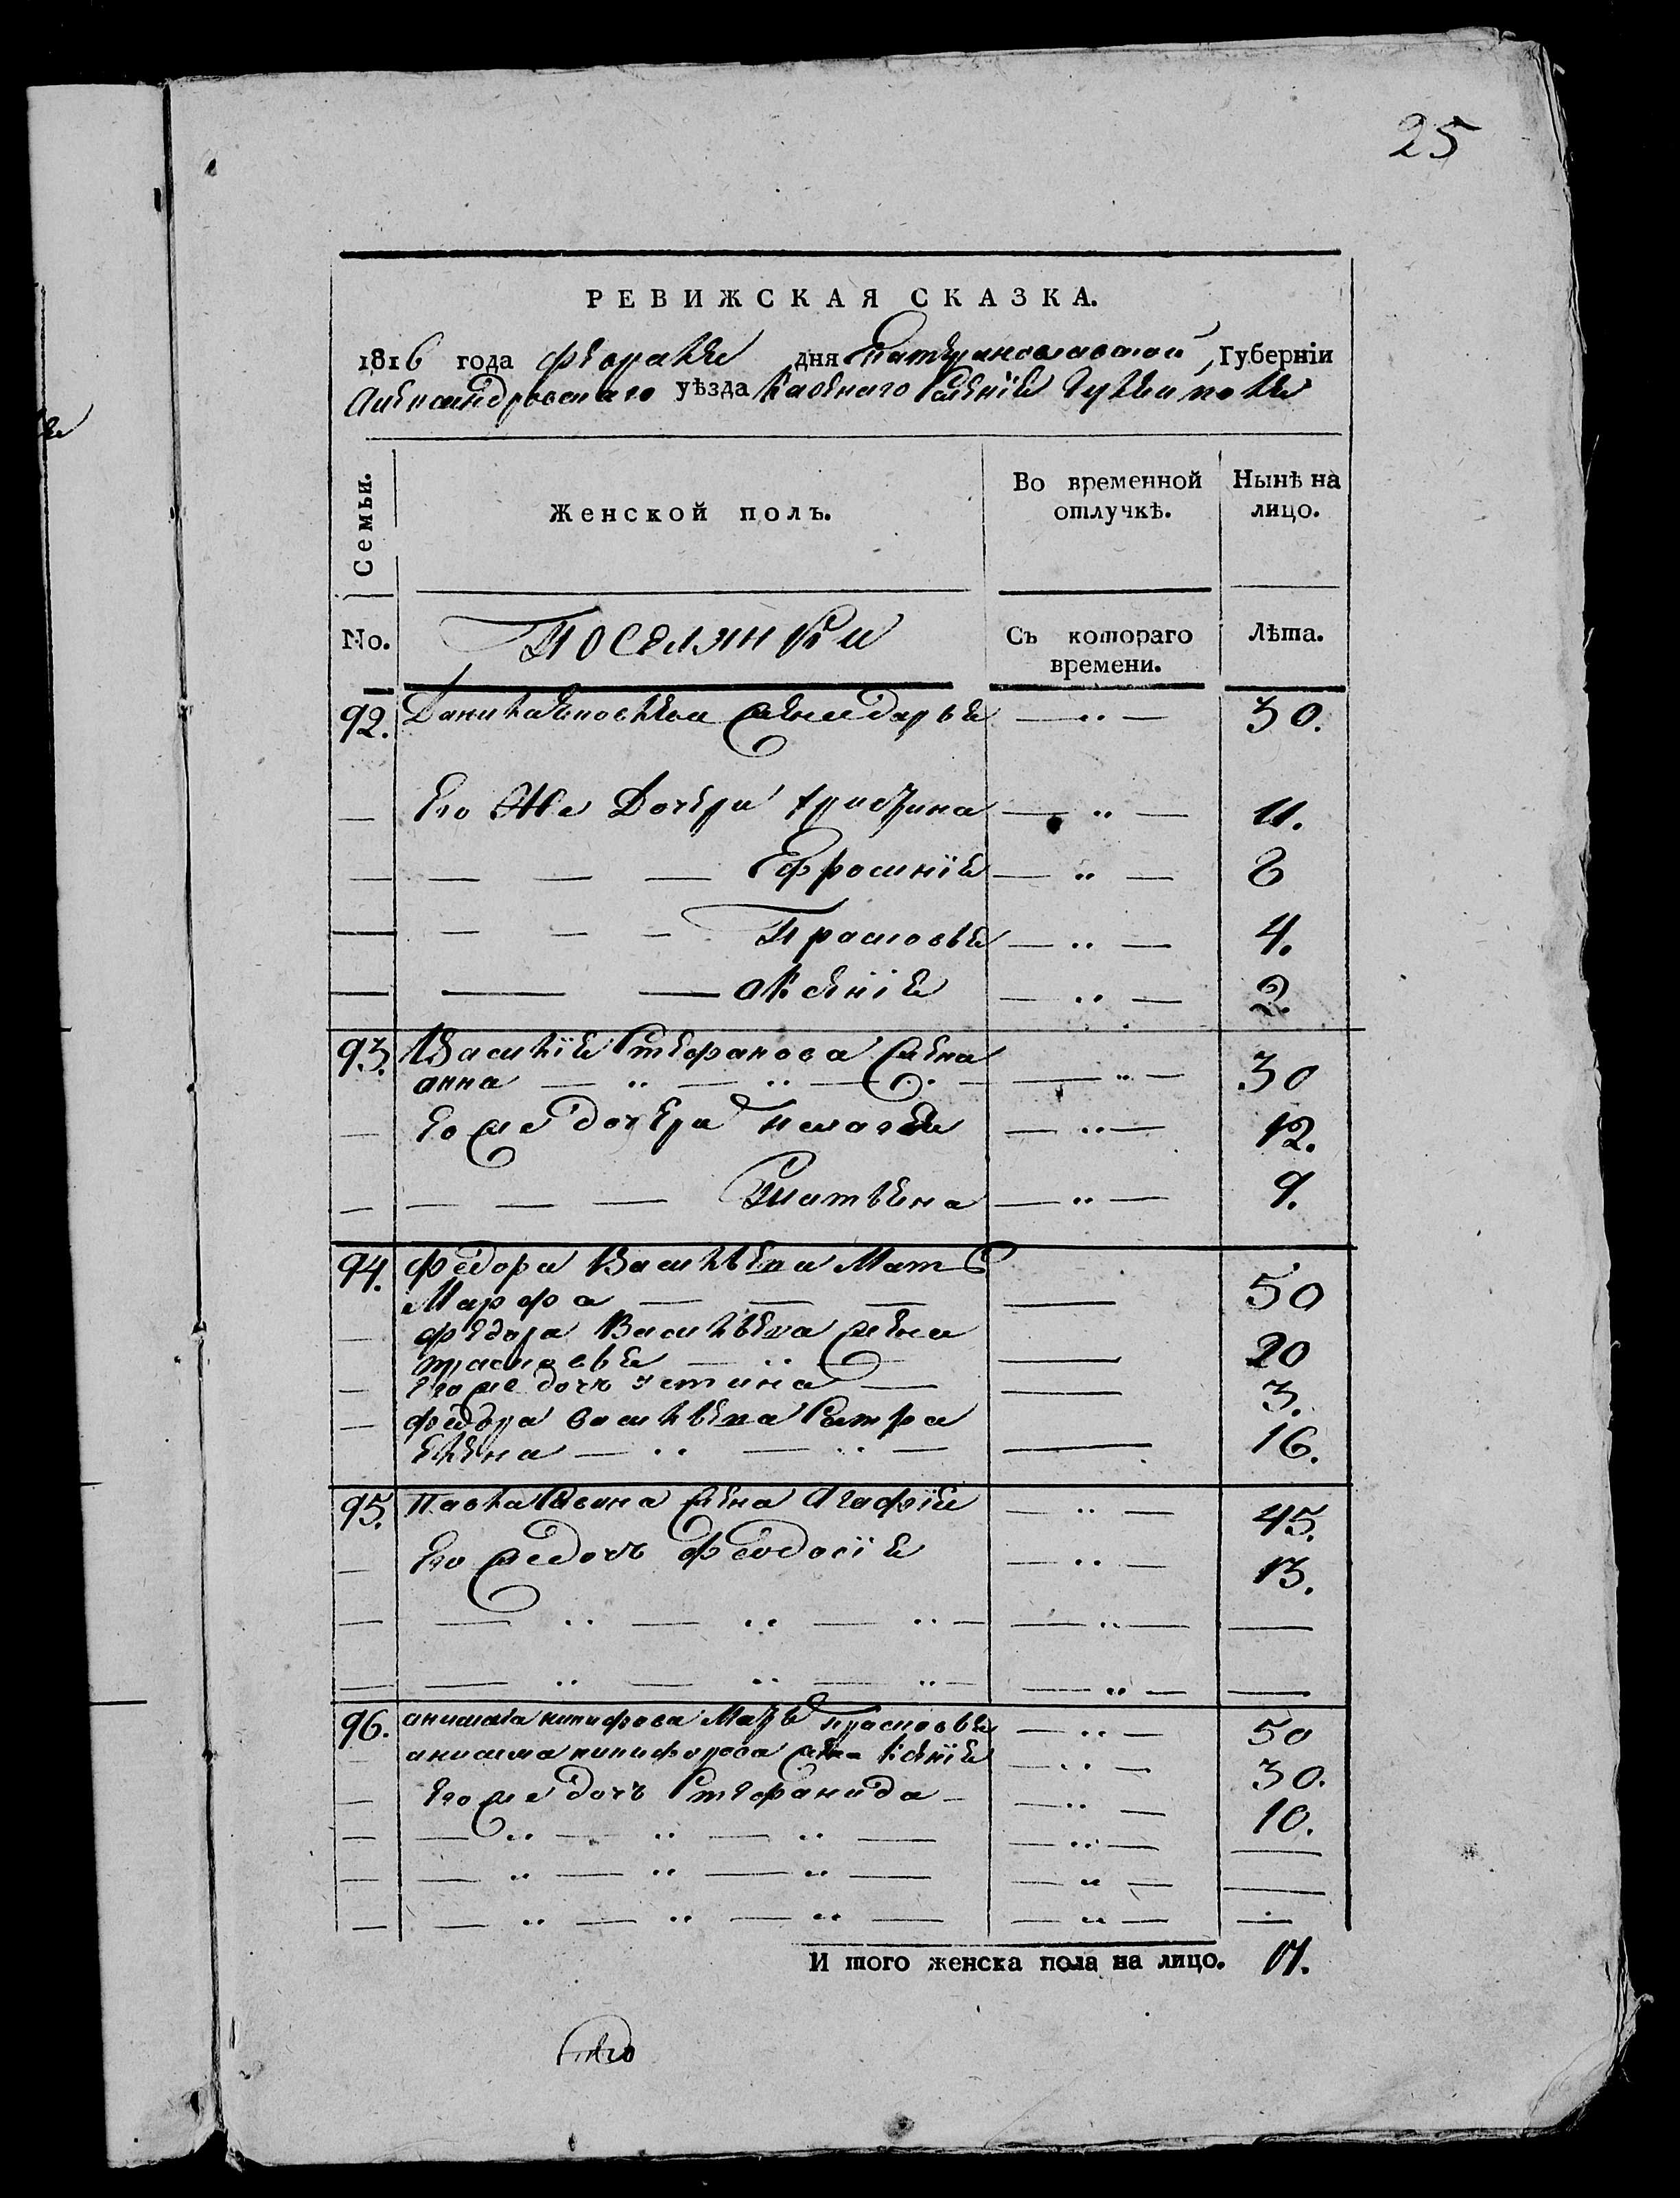 25
РЕВИЖСКАЯ СКАЗКА.
1816 года февраля дня Екатеринославской Губерніи
Александровского уѣзда Казенного Селенія
Семьи.
Женской полъ.
Во временной отлучкѣ.
Нынѣ на лицо.
No.
Поселянки
Съ котораго времени.
Лѣта.
92. Данила жена дарья — „ — 30.
— Его Же Дочери христина — „ — 11.
— — — — Ефросинія — „ — 8
— — — — Прасковья — „ — 4.
— — — оксенія — „ — 2.
93. Василія Стефанова жена
анна — „ — „ — „ — — „ — 30
— Его же дочери пелагея — „ — 12.
— — — — матвена — „ — 9.
94. федора Васильева Мать
Марфа — — — — 50
— федора Васильева жена
прасковья — „ — — 20
— Его же дочь устина — — 3.
— федора васильева Сестра
елена — „ — „ — — 16.
95. павла Савина жена Агафія — „ — 45.
— Его же дочь феодосія — „ — 13.
— — „ — „ — „ — — „ — —
— — „ — „ — „ — — „ — —
96. анисима никифорова Мать Прасковья — „ — 50
— анисима никифорова жена Ксенія — „ — 30.
— Его же дочь Стефанида — — „ — 10.
— — „ — „ — „ — — „ — —
— — „ — „ — „ — — „ — —
— — „ — „ — „ — — „ — —
И того женска пола на лицо. 17.